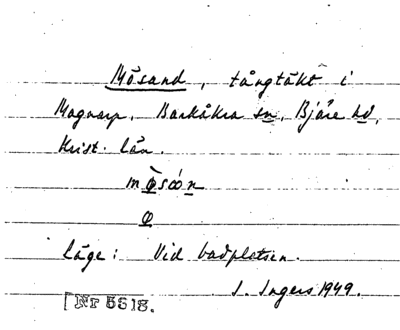 Mösand, tångtäkt i
Magnarp, Barkåkra sn, Bjäre hd,
Krist. län.
läge: Vid badplatsen.
I. Ingers 1949.
Nr 5618.